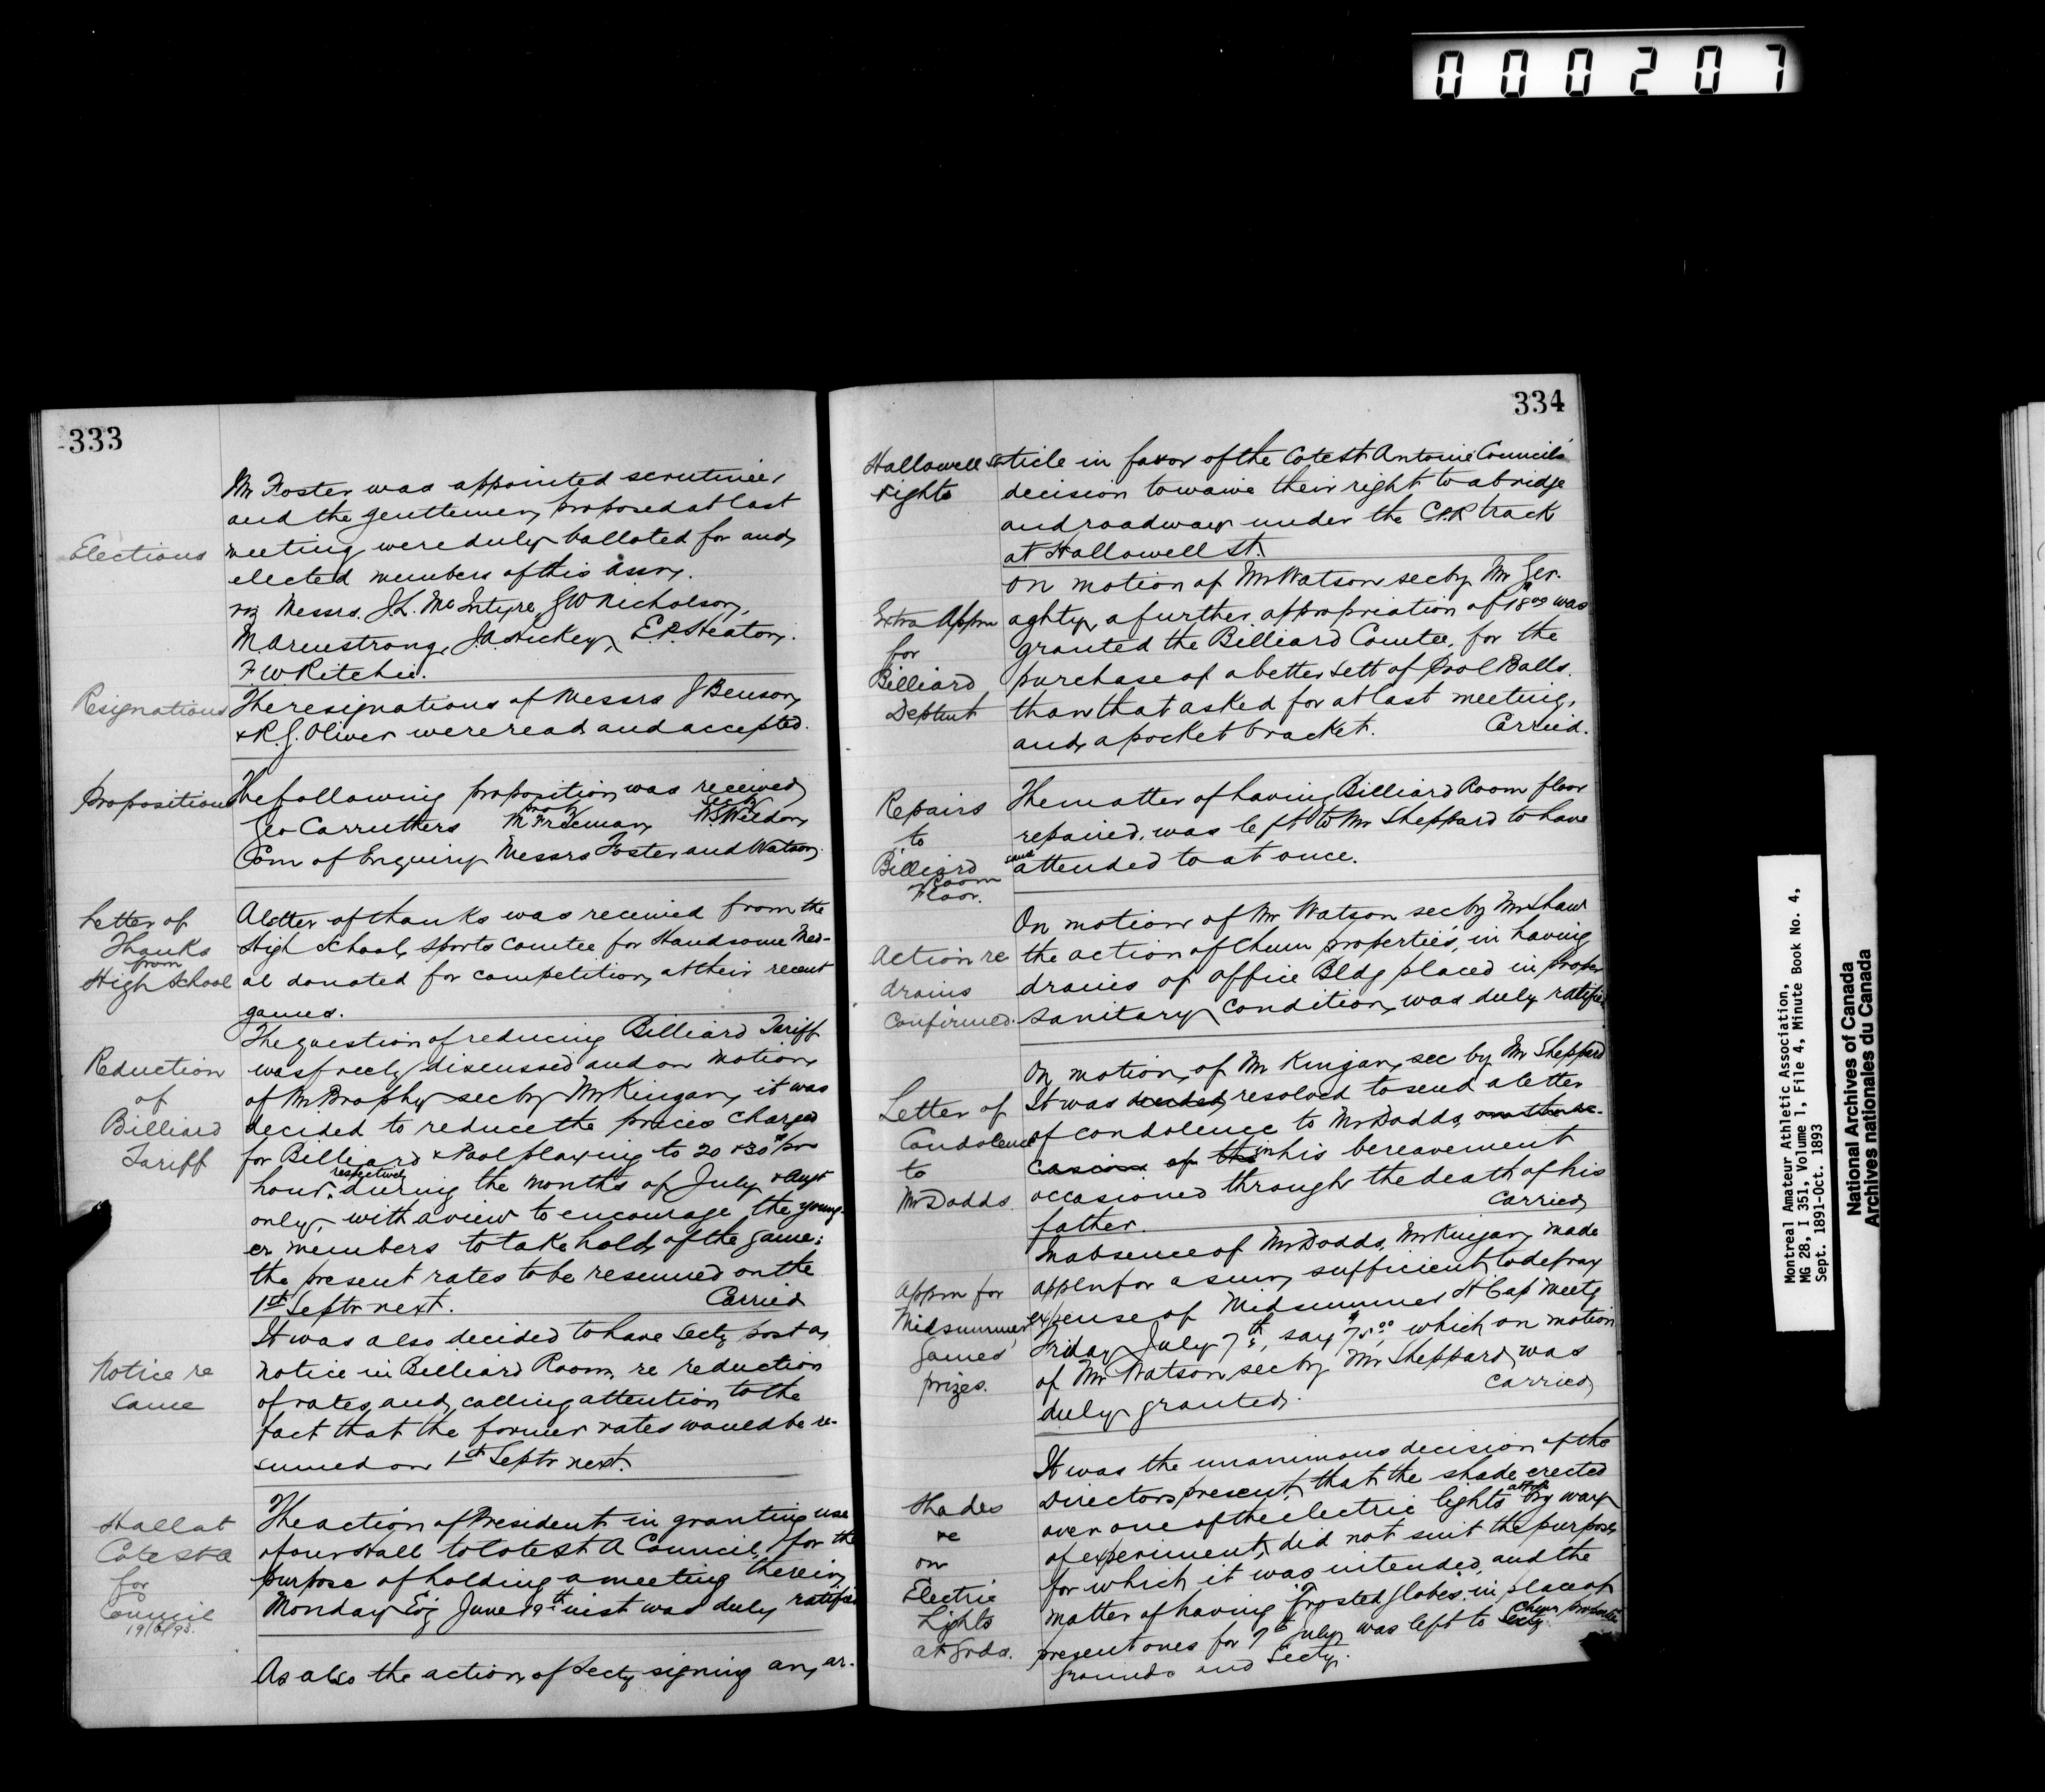 000207
333
Mr Foster was appointed scrutineer
and the gentlemen proposed at last
Elections
meeting were duly balloted for and
elected members of this Assn.
viz Messrs. J.L. McIntyre, G W Nicholson,
M Armstrong, J.A. Hickey, E.P. Heaton,
F.W Ritchie.
Resignations
The resignations of Messrs J Benson,
& R.J. Oliver were read and accepted.
Propositions
The following proposition was received
prop by sec by
Geo Carruthers M Freeman W.S. Weldon
Com of Enquiry Messrs Foster and Watson
Letter of
Thanks
from
High School
A letter of thanks was received from the
High School sports comtee for Handsome Med-
al donated for competition, at their recent
games.
Reduction
of
Billiard
Tariff
The question of reducing Billiard Tariff
was freely discussed and on motion
of Mr. Brophy sec by Mr Kingan, it was
decided to reduce the prices charged
for Billiard & Pool playing to 20 & 30 ¢ per
hour. respectively during the months of July & Augt
only, with a view to encourage the young-
er members to take hold of the game;
the present rates to be resumed on the
1st Septr next. Carried
Notice re
same
It was also decided to have Secty post a
notice in Billiard Room, re reduction
of rates, and calling attention to the
fact that the former rates would be re-
sumed on 1st Septr next.
Hall at
Cote St A
for
Council
19/6/93.
The action of President in granting use
of our Hall to Cote St A Council, for the
purpose of holding a meeting therein,
Monday Ev'g June 19th inst was duly ratified
As also the action of Secty signing an ar-
334
Hallowell St
rights
ticle in favor of the Cote St Antoine Council's
decision to waive their right to a bridge
and roadway under the C.P.R track
at Hallowell St.
Extra Apprn
for
Billiard
Deptmt
On motion of Mr Watson sec by Mr Ger-
aghty, a further appropriation of $18.00 was
granted the Billiard Comtee. for the
purchase of a better sett of Pool Balls.
than that asked for at last meeting,
and a pocket bracket. Carried.
Repairs
to
Billiard
Room
Floor.
The matter of having Billiard Room floor
repaired. was left to Mr Sheppard to have
same attended to at once.
Action re
drains
confirmed.
On motion of Mr Watson sec by Mr Shaw
the action of Chmn properties, in having
drains of office Bldg placed in proper
sanitary condition, was duly ratified
Letter of
Condolence
to
Mr Dodds.
On motion, of Mr Kingan, sec by Mr Sheppard
It was decided, resolved to send a letter
of condolence to Mr Dodds, on the oc-
casion of the in his bereavement
occasioned through the death of his
father. Carried
Apprn for
Midsummer
Games'
prizes.
In absence of Mr Dodds, Mr Kingan, made
appln for a sum, sufficient to defray
expense of Midsummer H'Cap meetg
Friday July 7th, say $75.00, which on motion
of Mr Watson, sec by Mr Sheppard, was
duly granted. Carried
Shades
re
on
Electric
Lights
at Grds.
It was the unanimous decision of the
Directors present, that the shade erected
over one of the electric lights by way
of experiment, did not suit the purpose
for which it was intended, and the
matter of having "Frosted Globes" in place of
present ones for 7th July, was left to Secty Chmn properties
Grounds and Secty.
Montreal Amateur Athletic Association,
MG 28, I 351, Volume 1, File 4, Minute Book No. 4,
Sept. 1891-Oct. 1893
National Archives of Canada
Archives nationales du Canada